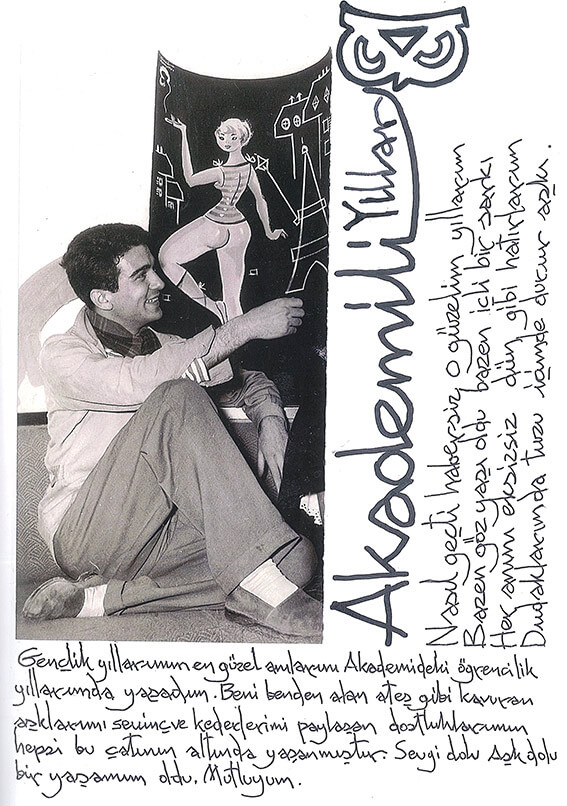 Akademili Yıllar
Nasıl geçti habersiz o güzelim yıllarım
Bazen gözyaşı oldu bazen içli bir şarkı
Her anını eksizsiz dün gibi hatırlarım
Dudaklarımda tuzu içimde durur aşkı.
Gençlik yıllarımın en güzel anlarını Akademideki öğrencilik
yıllarımda yaşadım. Beni benden alan ateş gibi kavuran
aşklarımı sevinç ve kederlerimi paylaşan dostluklarımın
hepsi bu çatının altında yaşanmıştır. Sevgi dolu Aşk dolu
bir yaşamım oldu. Mutluyum.